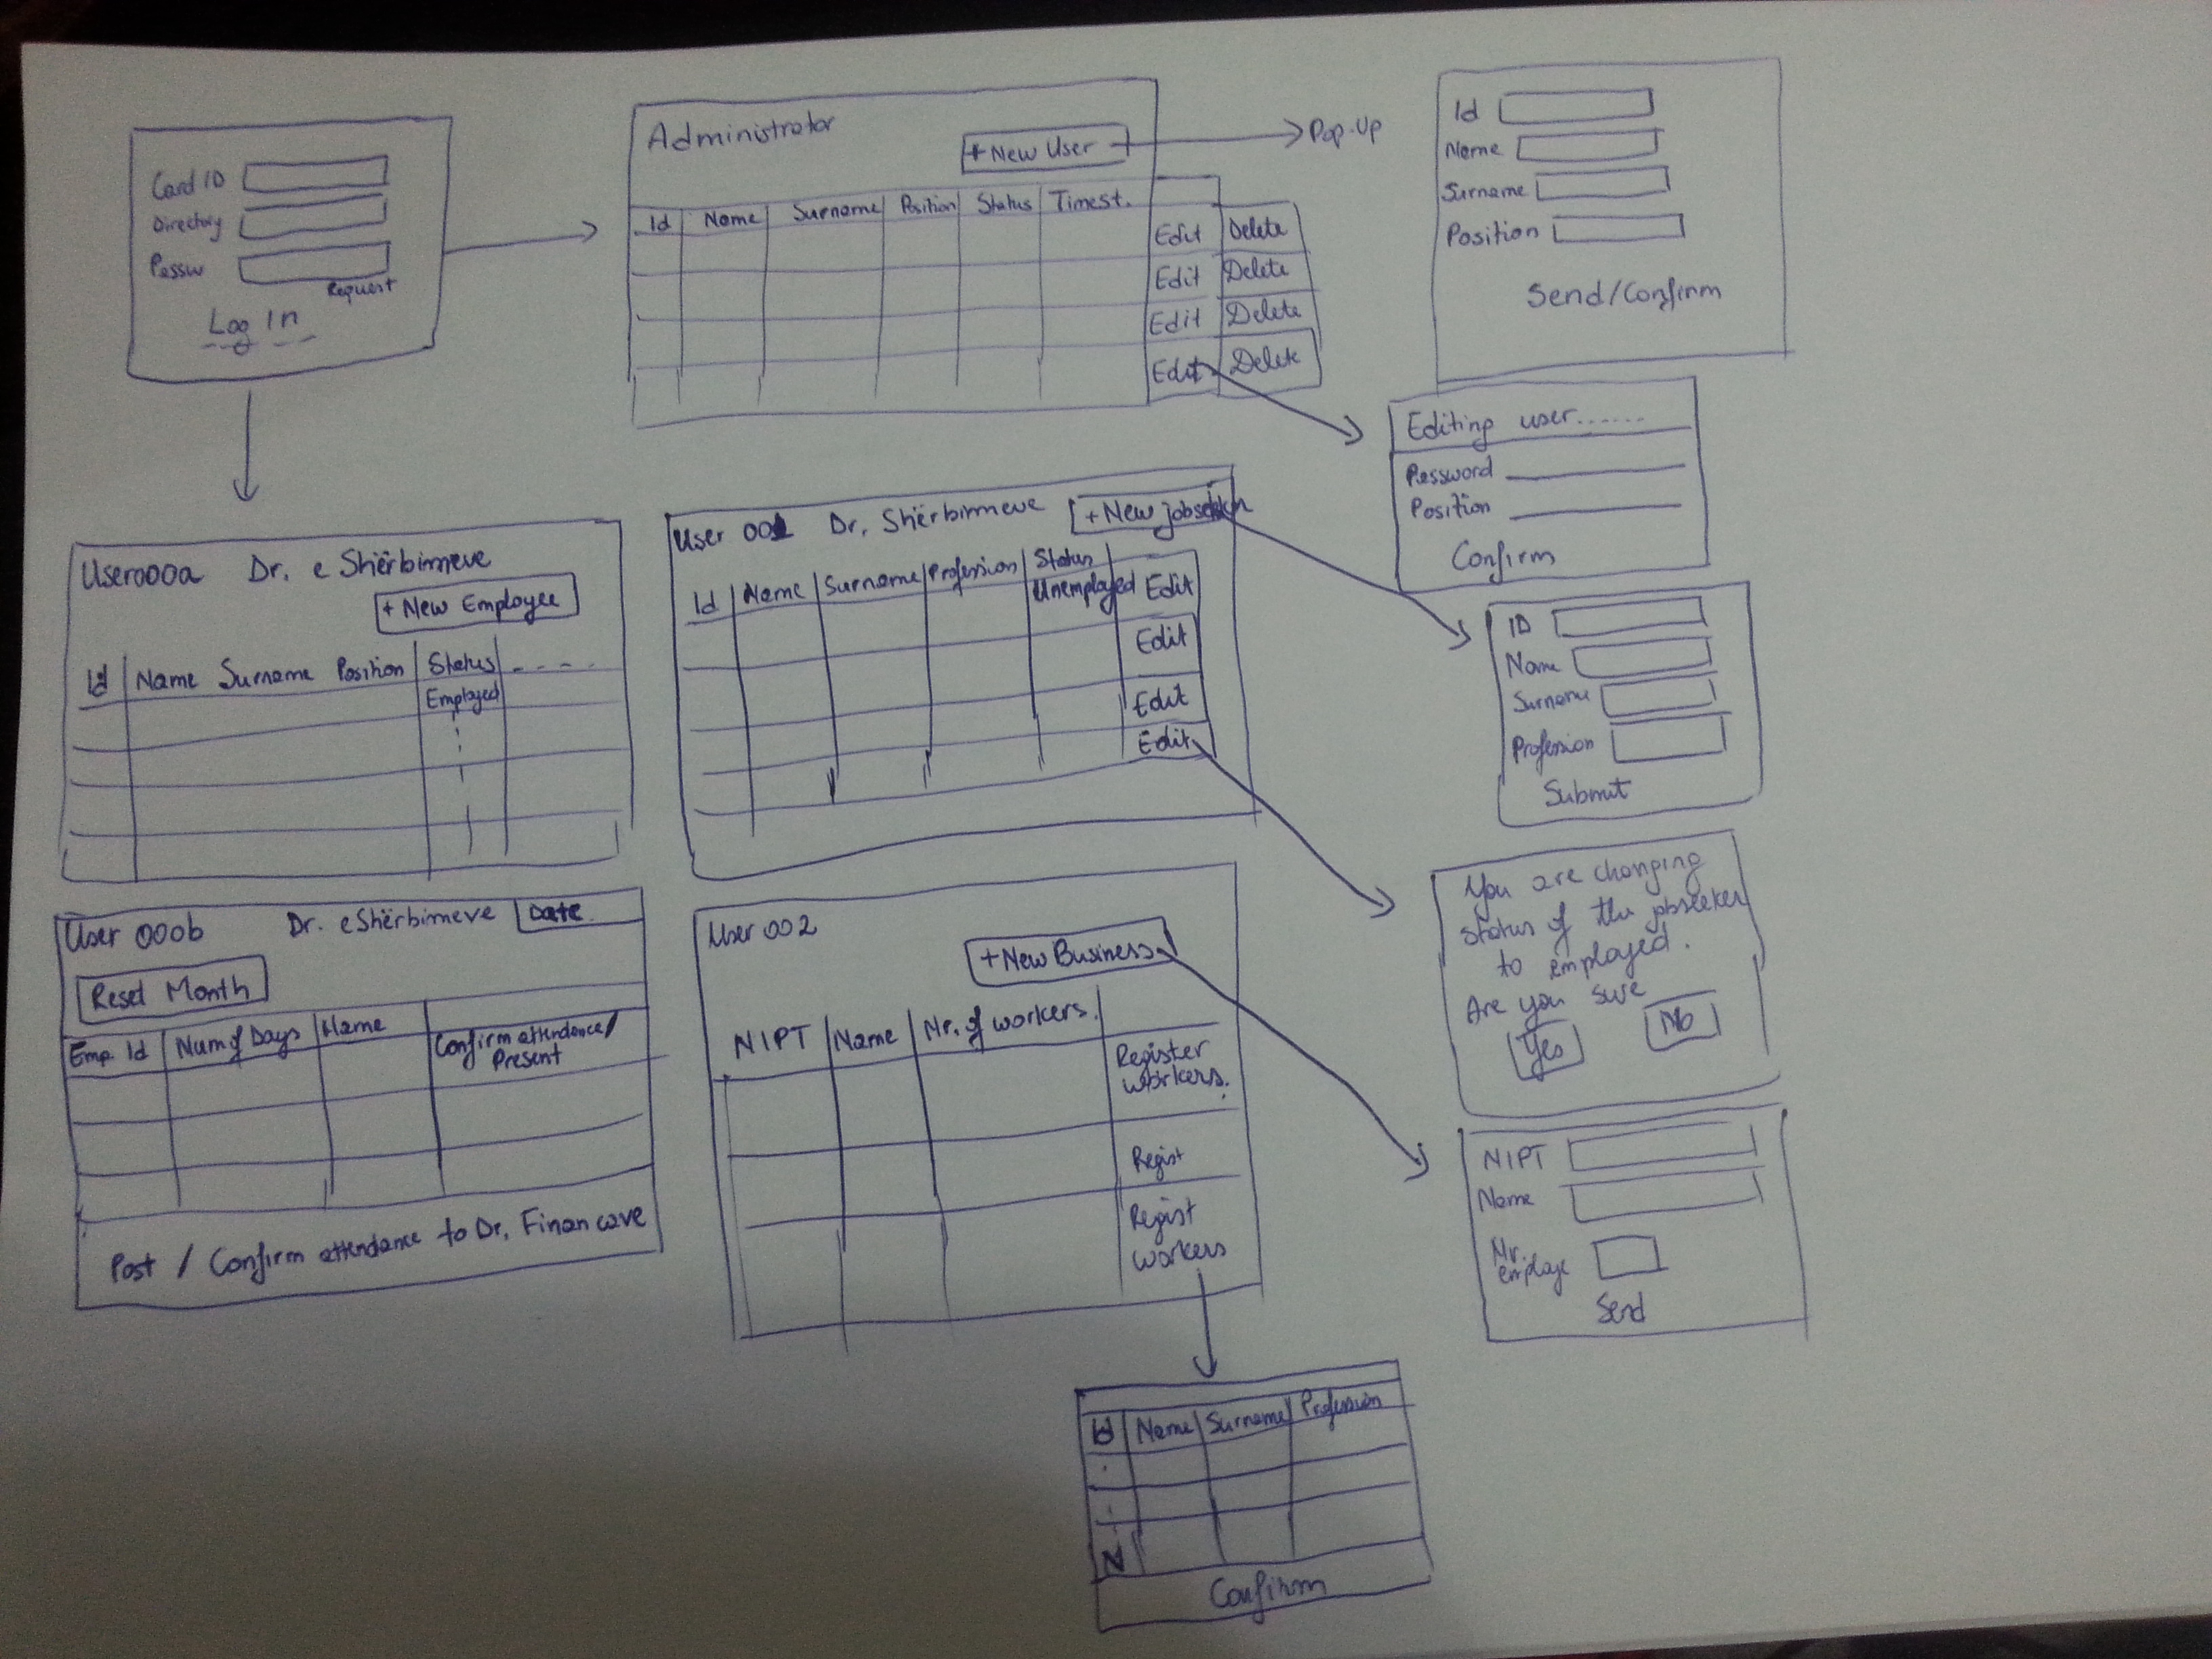 Card ID
Directory
Passw
Request
Log In
Administrator
+ New User
Pop-Up
Id Name Surname Position Status Timest.
Edit Delete
Edit Delete
Edit Delete
Edit Delete
Id
Name
Surname
Position
Send/Confirm
Editing user......
Password
Position
Confirm
User 000a Dr. e Shërbimeve
+ New Employee
Id Name Surname Position Status - - - -
Employed
User 001 Dr. Shërbimeve
Id Name Surname Profession Status
Unemployed Edit
Edit
Edit
Edit
ID
Name
Surname
Profession
Submit
You are changing
status of the jobseeker
to employed.
Are you sure
Yes No
User 000b Dr. e Shërbimeve Date
Reset Month
Emp Id Num of Days Name Confirm attendance/
Present
Post / Confirm attendance to Dr. Financave
User 002
+ New Business
NIPT Name Nr. of workers.
Register
workers.
Regist
Regist
workers
NIPT
Name
Nr.
employe
Send
Id Name Surname Profession
N
Confirm